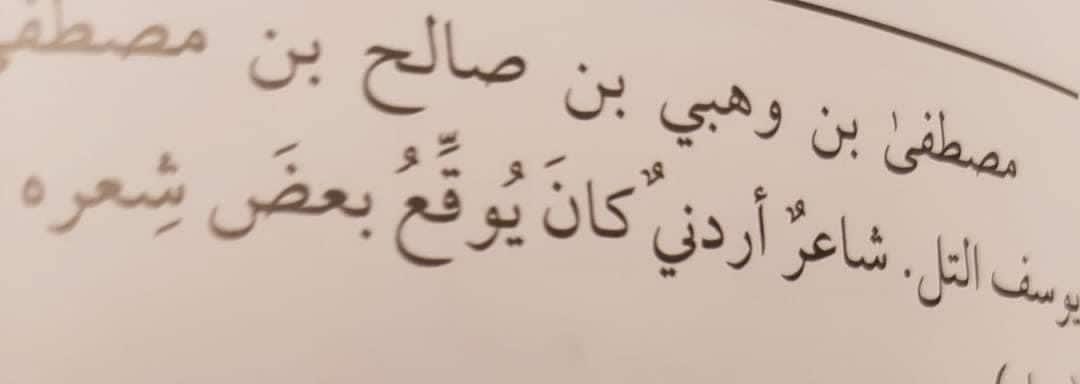 مصطفىٰ بن وهبي بن صالح بن مصطفى
يوسف التل. شاعرٌ أردنيٌ كانَ يُوقِّعُ بعضَ شِعره